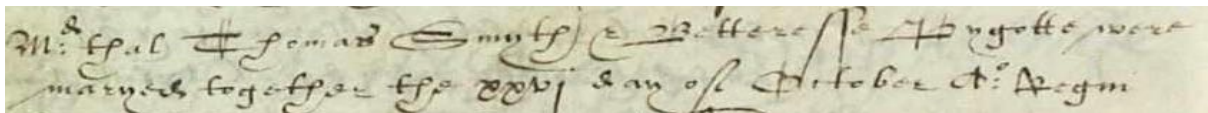 M:d that Thomas Smyth & Betteresse Pygotte were
maryed together the xxvi day of October Ao: Regni